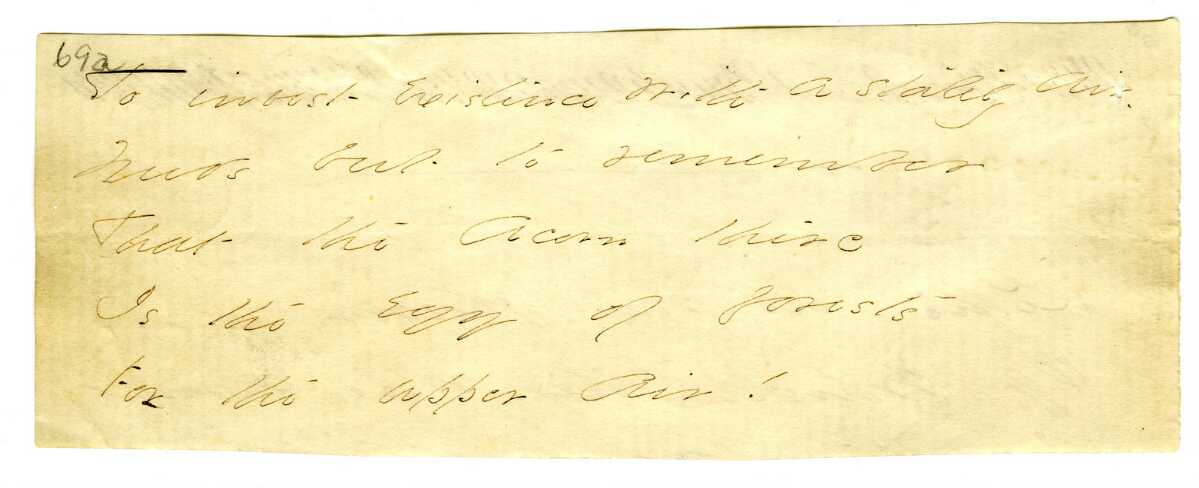 69a
To invest Existence with a stately Air.
Needs but to remember
That the Acorn there
Is the Egg of forests
For the upper Air!